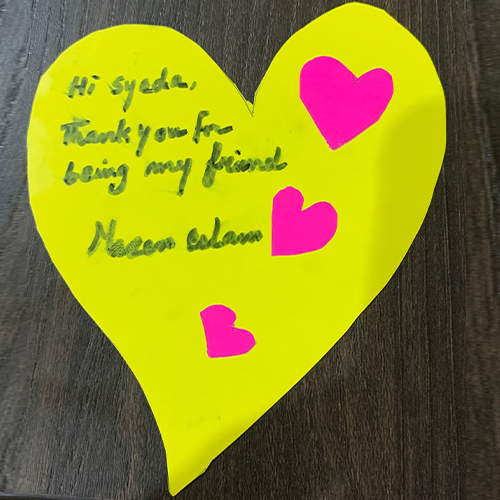 Hi Syeda,
Thank you for
being my friend